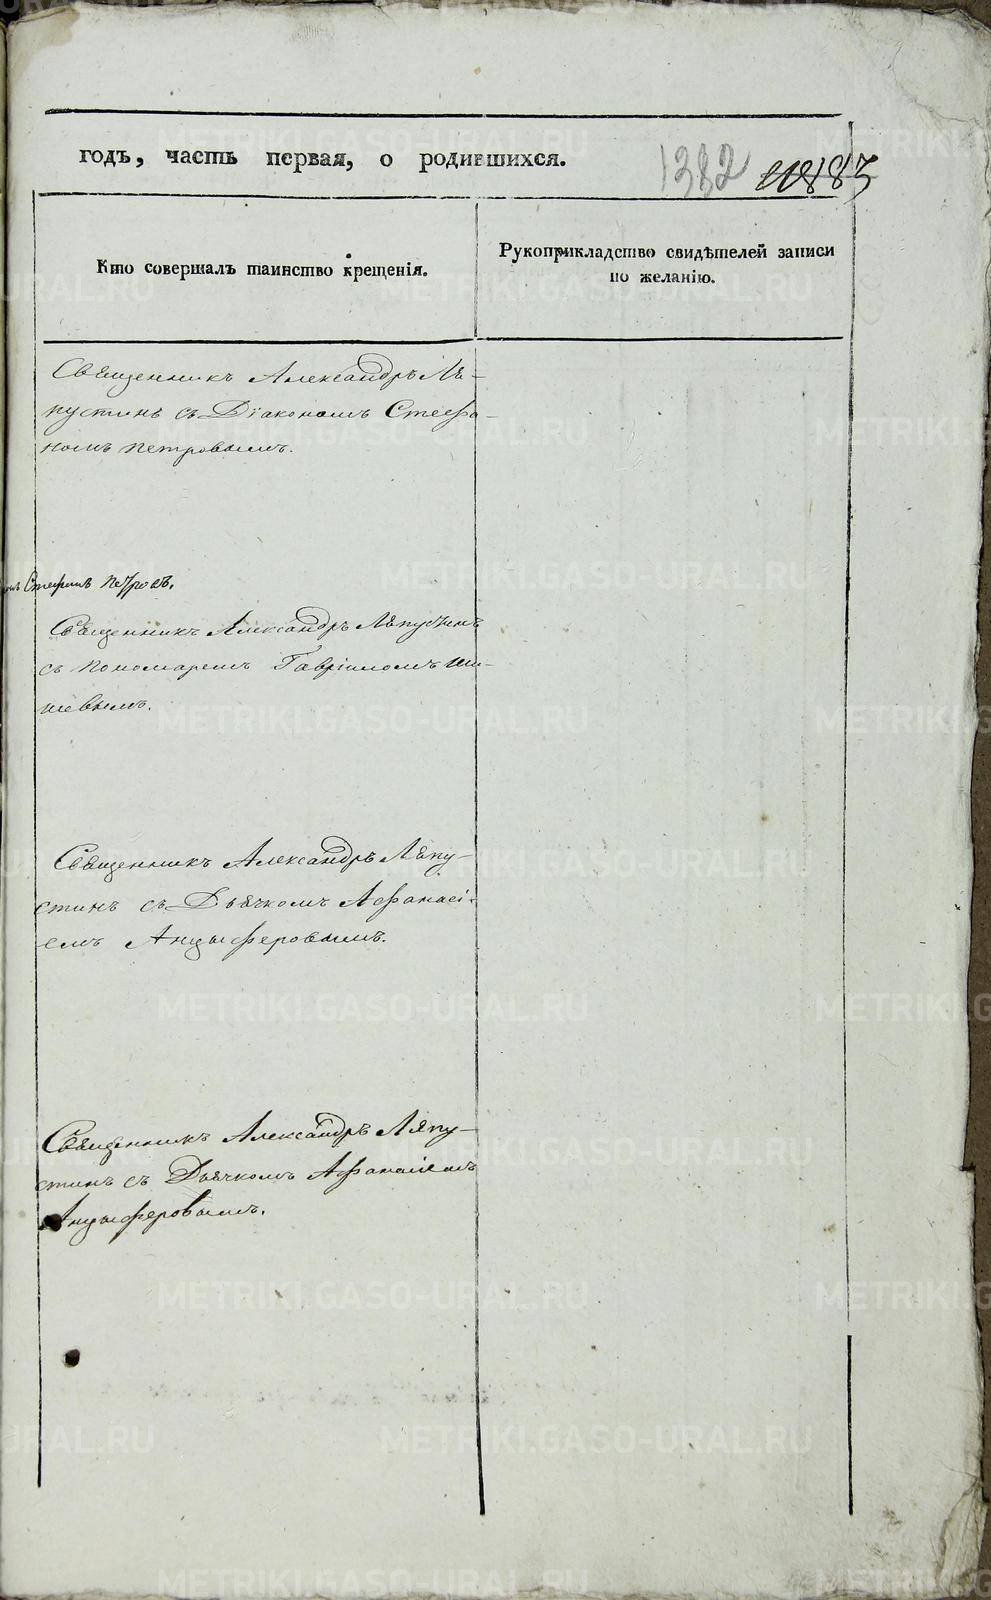 годъ, часть первая, о родившихся.
1382
183
Кто совершалъ таинство крещенія.
Рукоприкладство свидѣтелей записи
по желанію.
Священникъ Александръ Ля-
пустинъ съ Діакономъ Стефа-
номъ Петровымъ.
Стефанъ Петровъ.
Священникъ Александръ Ляпустинъ
съ Пономаремъ Гавріиломъ Ши-
шевымъ.
Священникъ Александръ Ляпу-
стинъ съ Дьячкомъ Афанасі-
емъ Анцыферовымъ.
Священникъ Александръ Ляпу-
стинъ съ Дьячкомъ Афанасіемъ
Анцыферовымъ.
METRIKI.GASO-URAL.RU